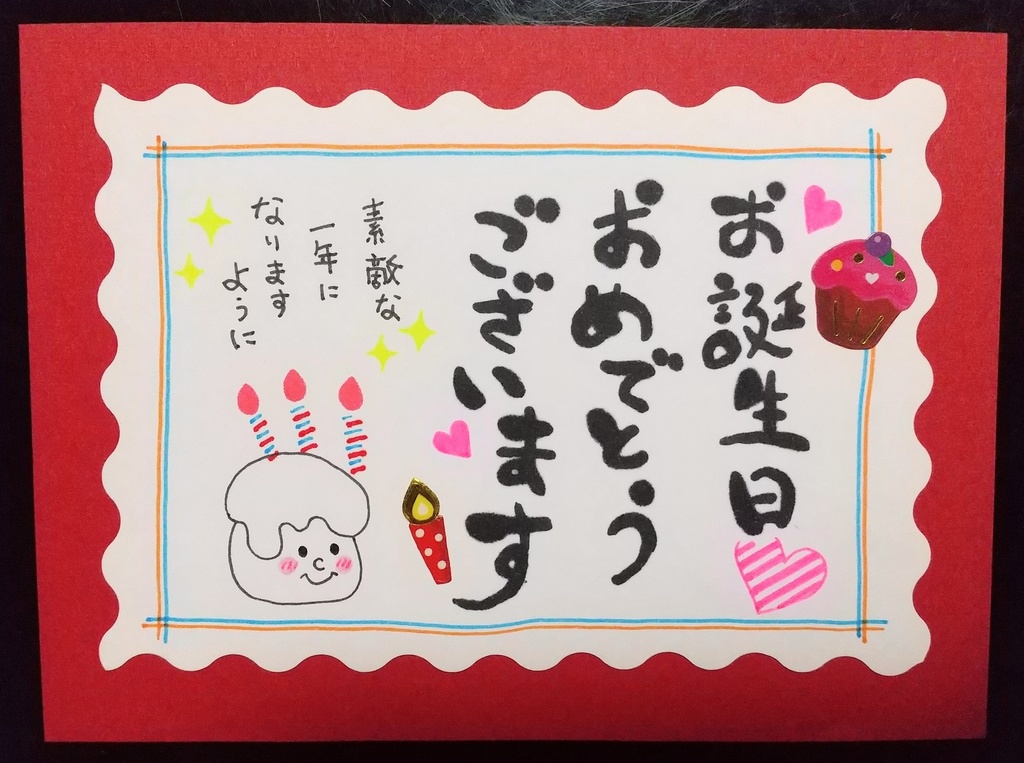 お誕生日
おめでとう
ございます
素敵な
一年に
なります
ように